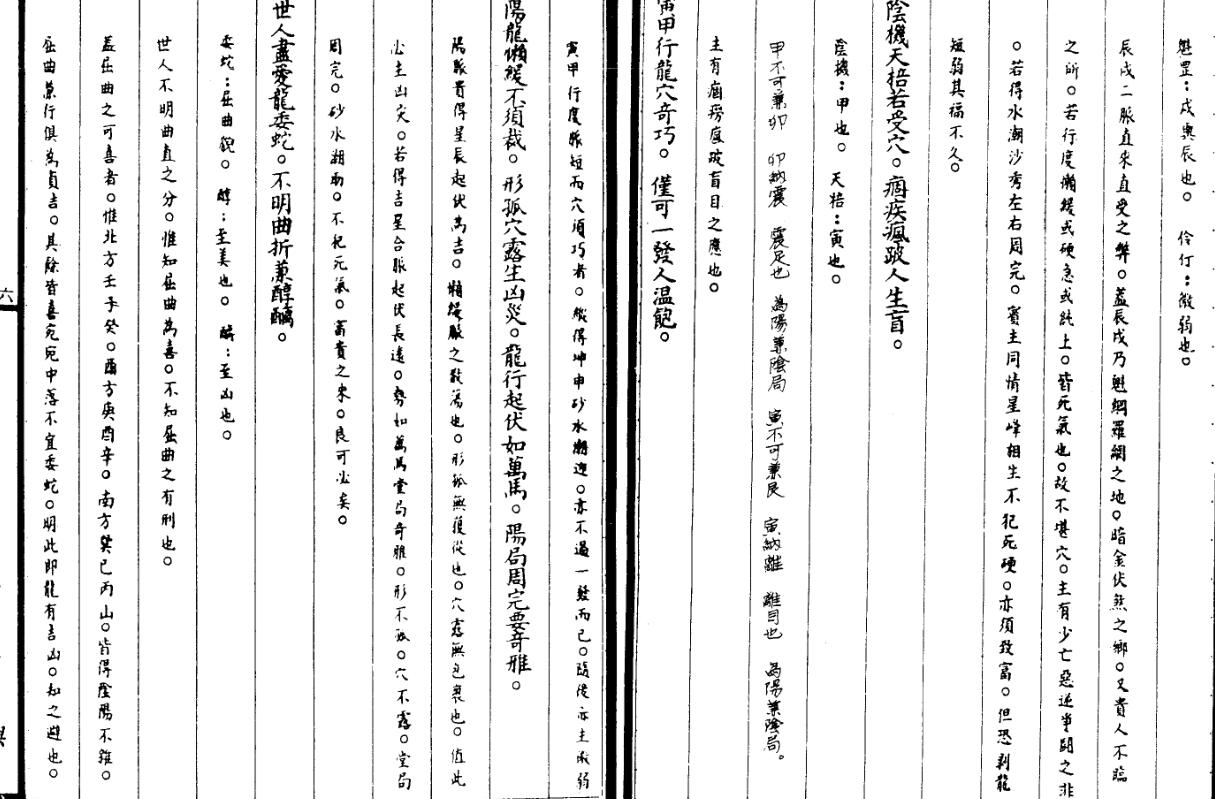 魁罡：戌與辰也。　伶仃：微弱也。
辰戌二脈直來直受之弊。蓋辰戌乃魁綱羅網之地。暗金伏煞之鄉。又貴人不臨
之所。若行度懶緩或硬急或純土。皆死氣也。故不堪穴。主有少亡惡逆爭鬪之非
。若得水潮沙秀左右周完。賓主同情星峰相生不犯死硬。亦須致富。但恐剥龍
短弱其福不久。
陰機天棓若受穴。痼疾瘋跛人生盲。
陰機：甲也。　天棓：寅也。
甲不可兼卯　卯納震　震足也　為陽兼陰局　寅不可兼艮　寅納離　離目也　為陽兼陰局。
主有痼癆瘋跛盲目之應也。
寅甲行龍穴奇巧。僅可一發人温飽。
寅甲行度脈短而穴須巧者。縱得坤申砂水潮迎。亦不過一發而已。隨後亦主衰弱
陽龍懶緩不須裁。形孤穴露生凶災。龍行起伏如萬馬。陽局周完要奇雅。
陽脈貴得星辰起伏為吉。懶緩脈之散蕩也。形孤無護從也。穴露無包裹也。值此
必主凶灾。若得吉星合脈起伏長遠。勢如萬馬堂局奇雅。形不孤。穴不露。堂局
周完。砂水湖南。不犯元氣。富貴之來。良可必矣。
世人盡愛龍委蛇。不明曲折兼醇醨。
委蛇：屈曲貌。　醇：至美也。　醨：至凶也。
世人不明曲直之分。惟知屈曲為喜。不知屈曲之有刑也。
蓋屈曲之可喜者。惟北方壬子癸。酉方庚酉辛。南方巽巳丙山。皆得陰陽不雜。
屈曲兼行俱為貞吉。其除皆喜宛宛中落不宜委蛇。明此即龍有吉凶。知之避也。
六